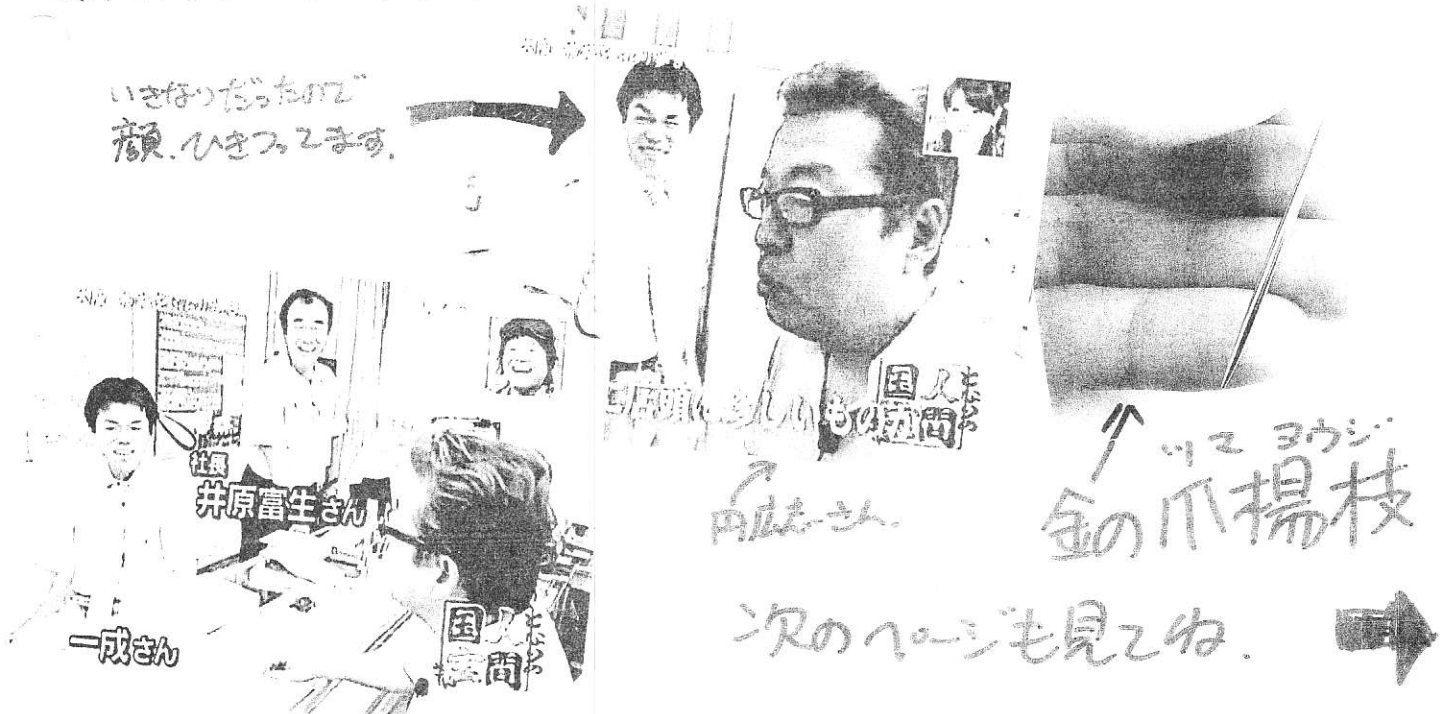 いきなりだったので
顔、ひきつってます。
社長
井原富生さん
一成さん
国人
間
国人
間
円広志さん。
ツマ ヨウジ
金の爪楊枝
次のページも見てね。